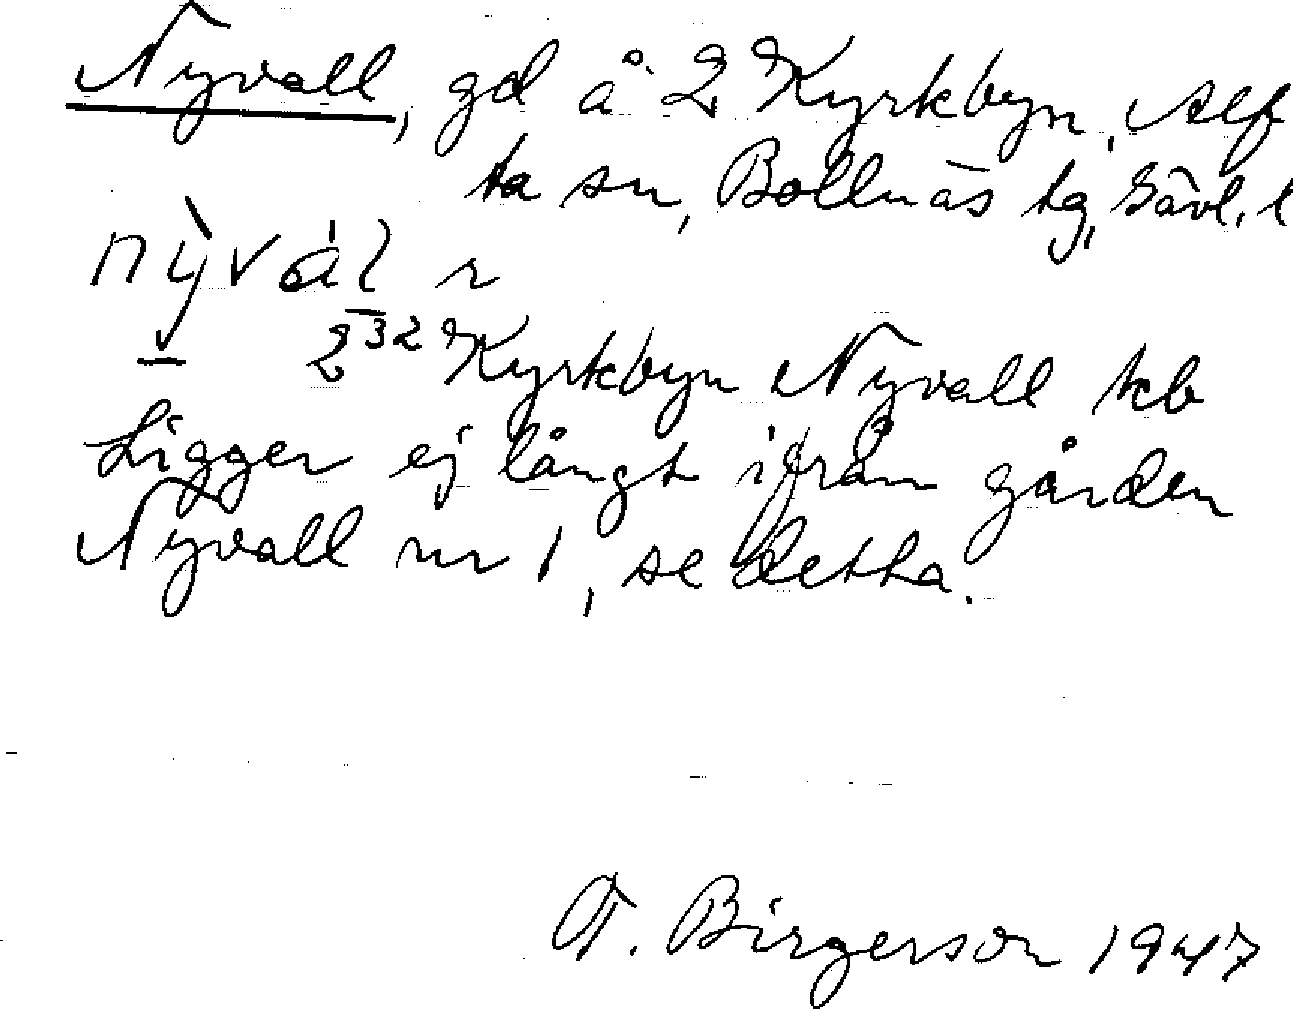 Nyvall, gd å 2 Kyrkbyn, Alf
ta sn, Bollnäs tg, Gävl. l
nỳvál n
2³² Kyrkbyn Nyvall kb
Ligger ej långt ifrån gården
Nyvall nr 1, se detta.
T. Birgerson 1947